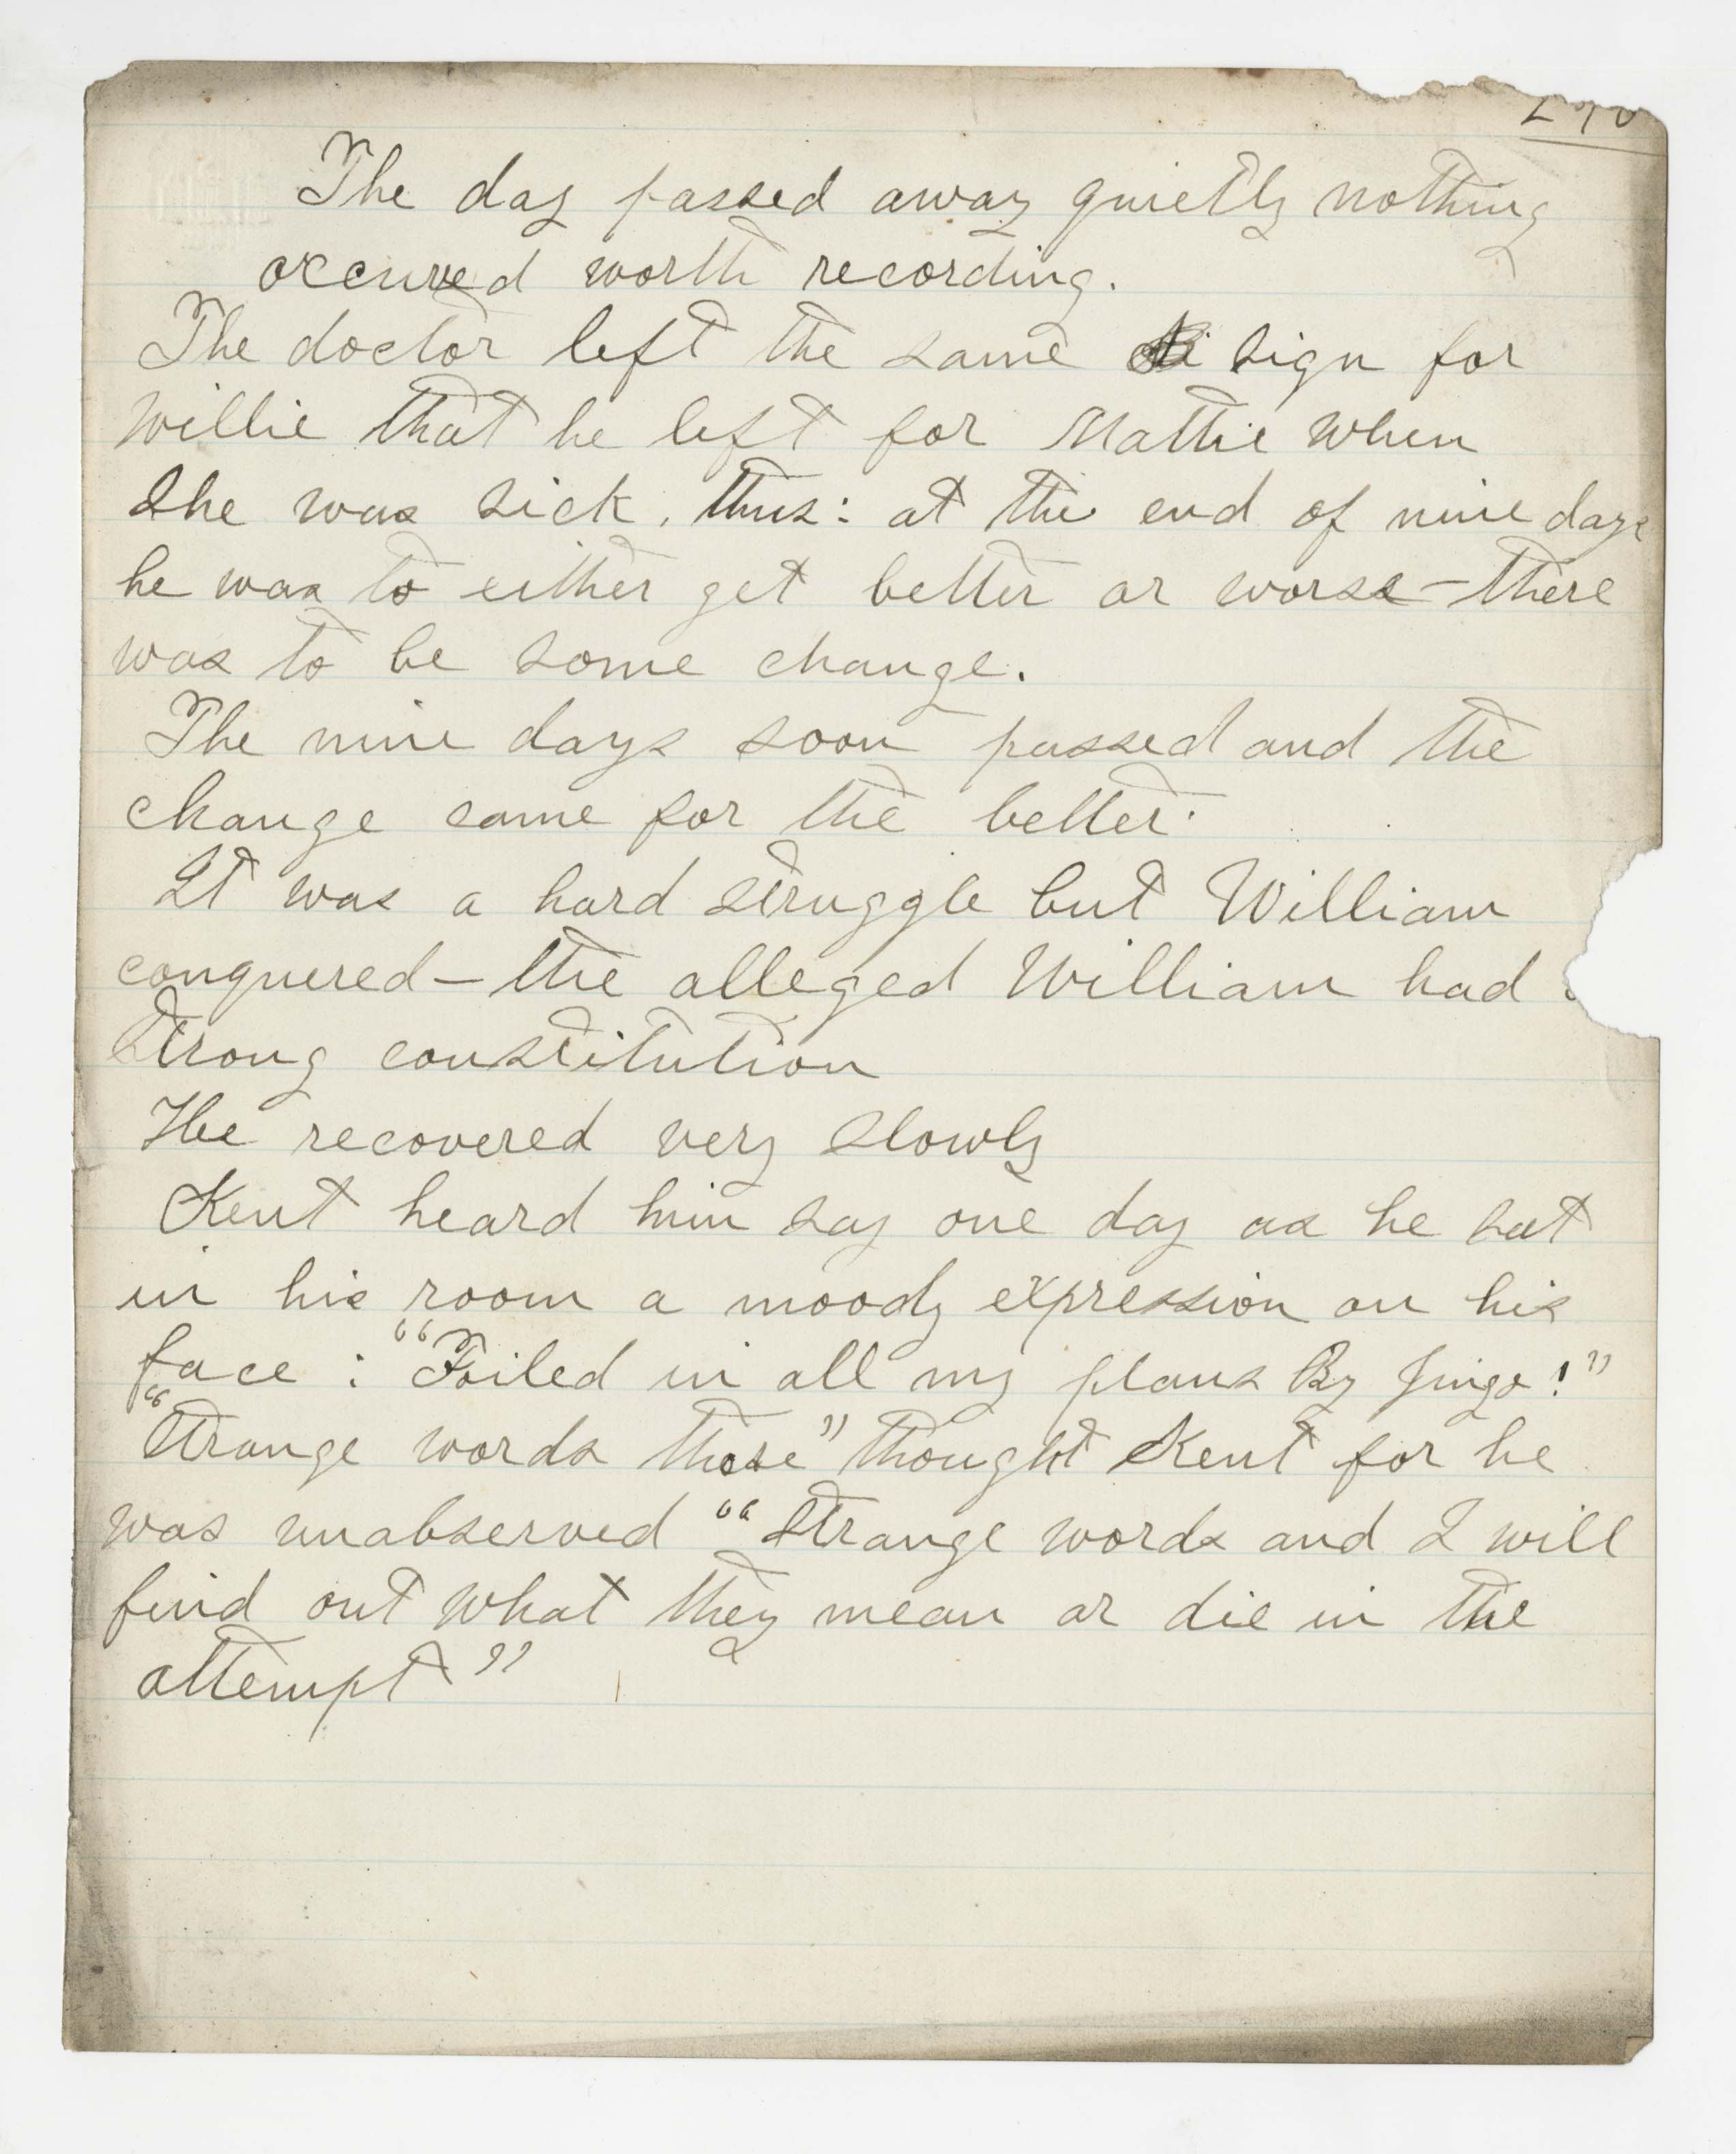 The day passed away quietly nothing
occured worth recording.
The doctor left the same sign for
Willie that he left for Mattie when
She was sick. thus: at the end of nine days
he was to either get better or worse—there
was to be some change.
The nine days soon passed and the
change came for the better.
It was a hard struggle but William
conquered—the alleged William had
Strong constitution
He recovered very slowly
Kent heard him say one day as he sat
in his room a moody expression on his
face: "Foiled in all my plans By Jingo!"
"Strange words those" thought Kent for he
was unobserved "Strange words and I will
find out what they mean or die in the
attempt"